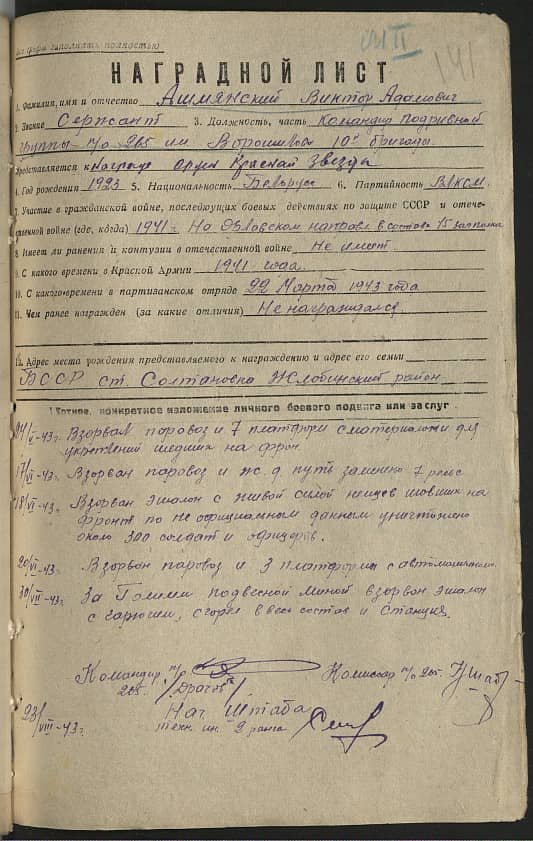 все графы заполнять полностью
141
НАГРАДНОЙ ЛИСТ
1. Фамилия, имя и отчество Ашмянский Виктор Адамович
2. Звание Сержант 3. Должность, часть Командир подрывной
группы п/о 265 им. Ворошилова 10й бригады.
Представляется к награде орден Красная Звезда
4. Год рождения 1923 5. Национальность Беларус 6. Партийность ВЛКСМ.
7. Участие в гражданской войне, последующих боевых действиях по защите СССР и отече-
ственной войне (где, когда) 1941 г. На Орловском направл. в составе 15 зап. полка
8. Имеет ли ранения и контузии в отечественной войне Не имеет
9. С какого времени в Красной Армии 1941 года.
10. С какого времени в партизанском отряде 22 Марта 1943 года
11. Чем ранее награжден (за какие отличия) Не награждался.
12. Адрес места рождения представляемого к награждению и адрес его семьи
БССР ст. Солтановка Жлобинский район
Краткое, конкретное изложение личного боевого подвига или заслуг
-43 г. Взорвал паровоз и 7 платформ с материалами для
укреплений шедших на фрон
17/VI-43 г. Взорван паровоз и ж.д. путь заменено 7 рельс
18/VI-43 г. Взорван эшалон с живой силой немцев шовших на
фронт по не официальным данным уничтожено
около 300 солдат и офицеров.
20/VI-43 г. Взорван паровоз и 3 платформы с автомашинами.
30/VII-43 г. За Голыми подвесной миной взорван эшалон
с горючим, сгорел весь состав и Станция.
Командир п/о Комиссар п/о 265.
265 /Драгов/
23/VIII-43 г. Нач. Штаба
техн. ин. 2 ранга